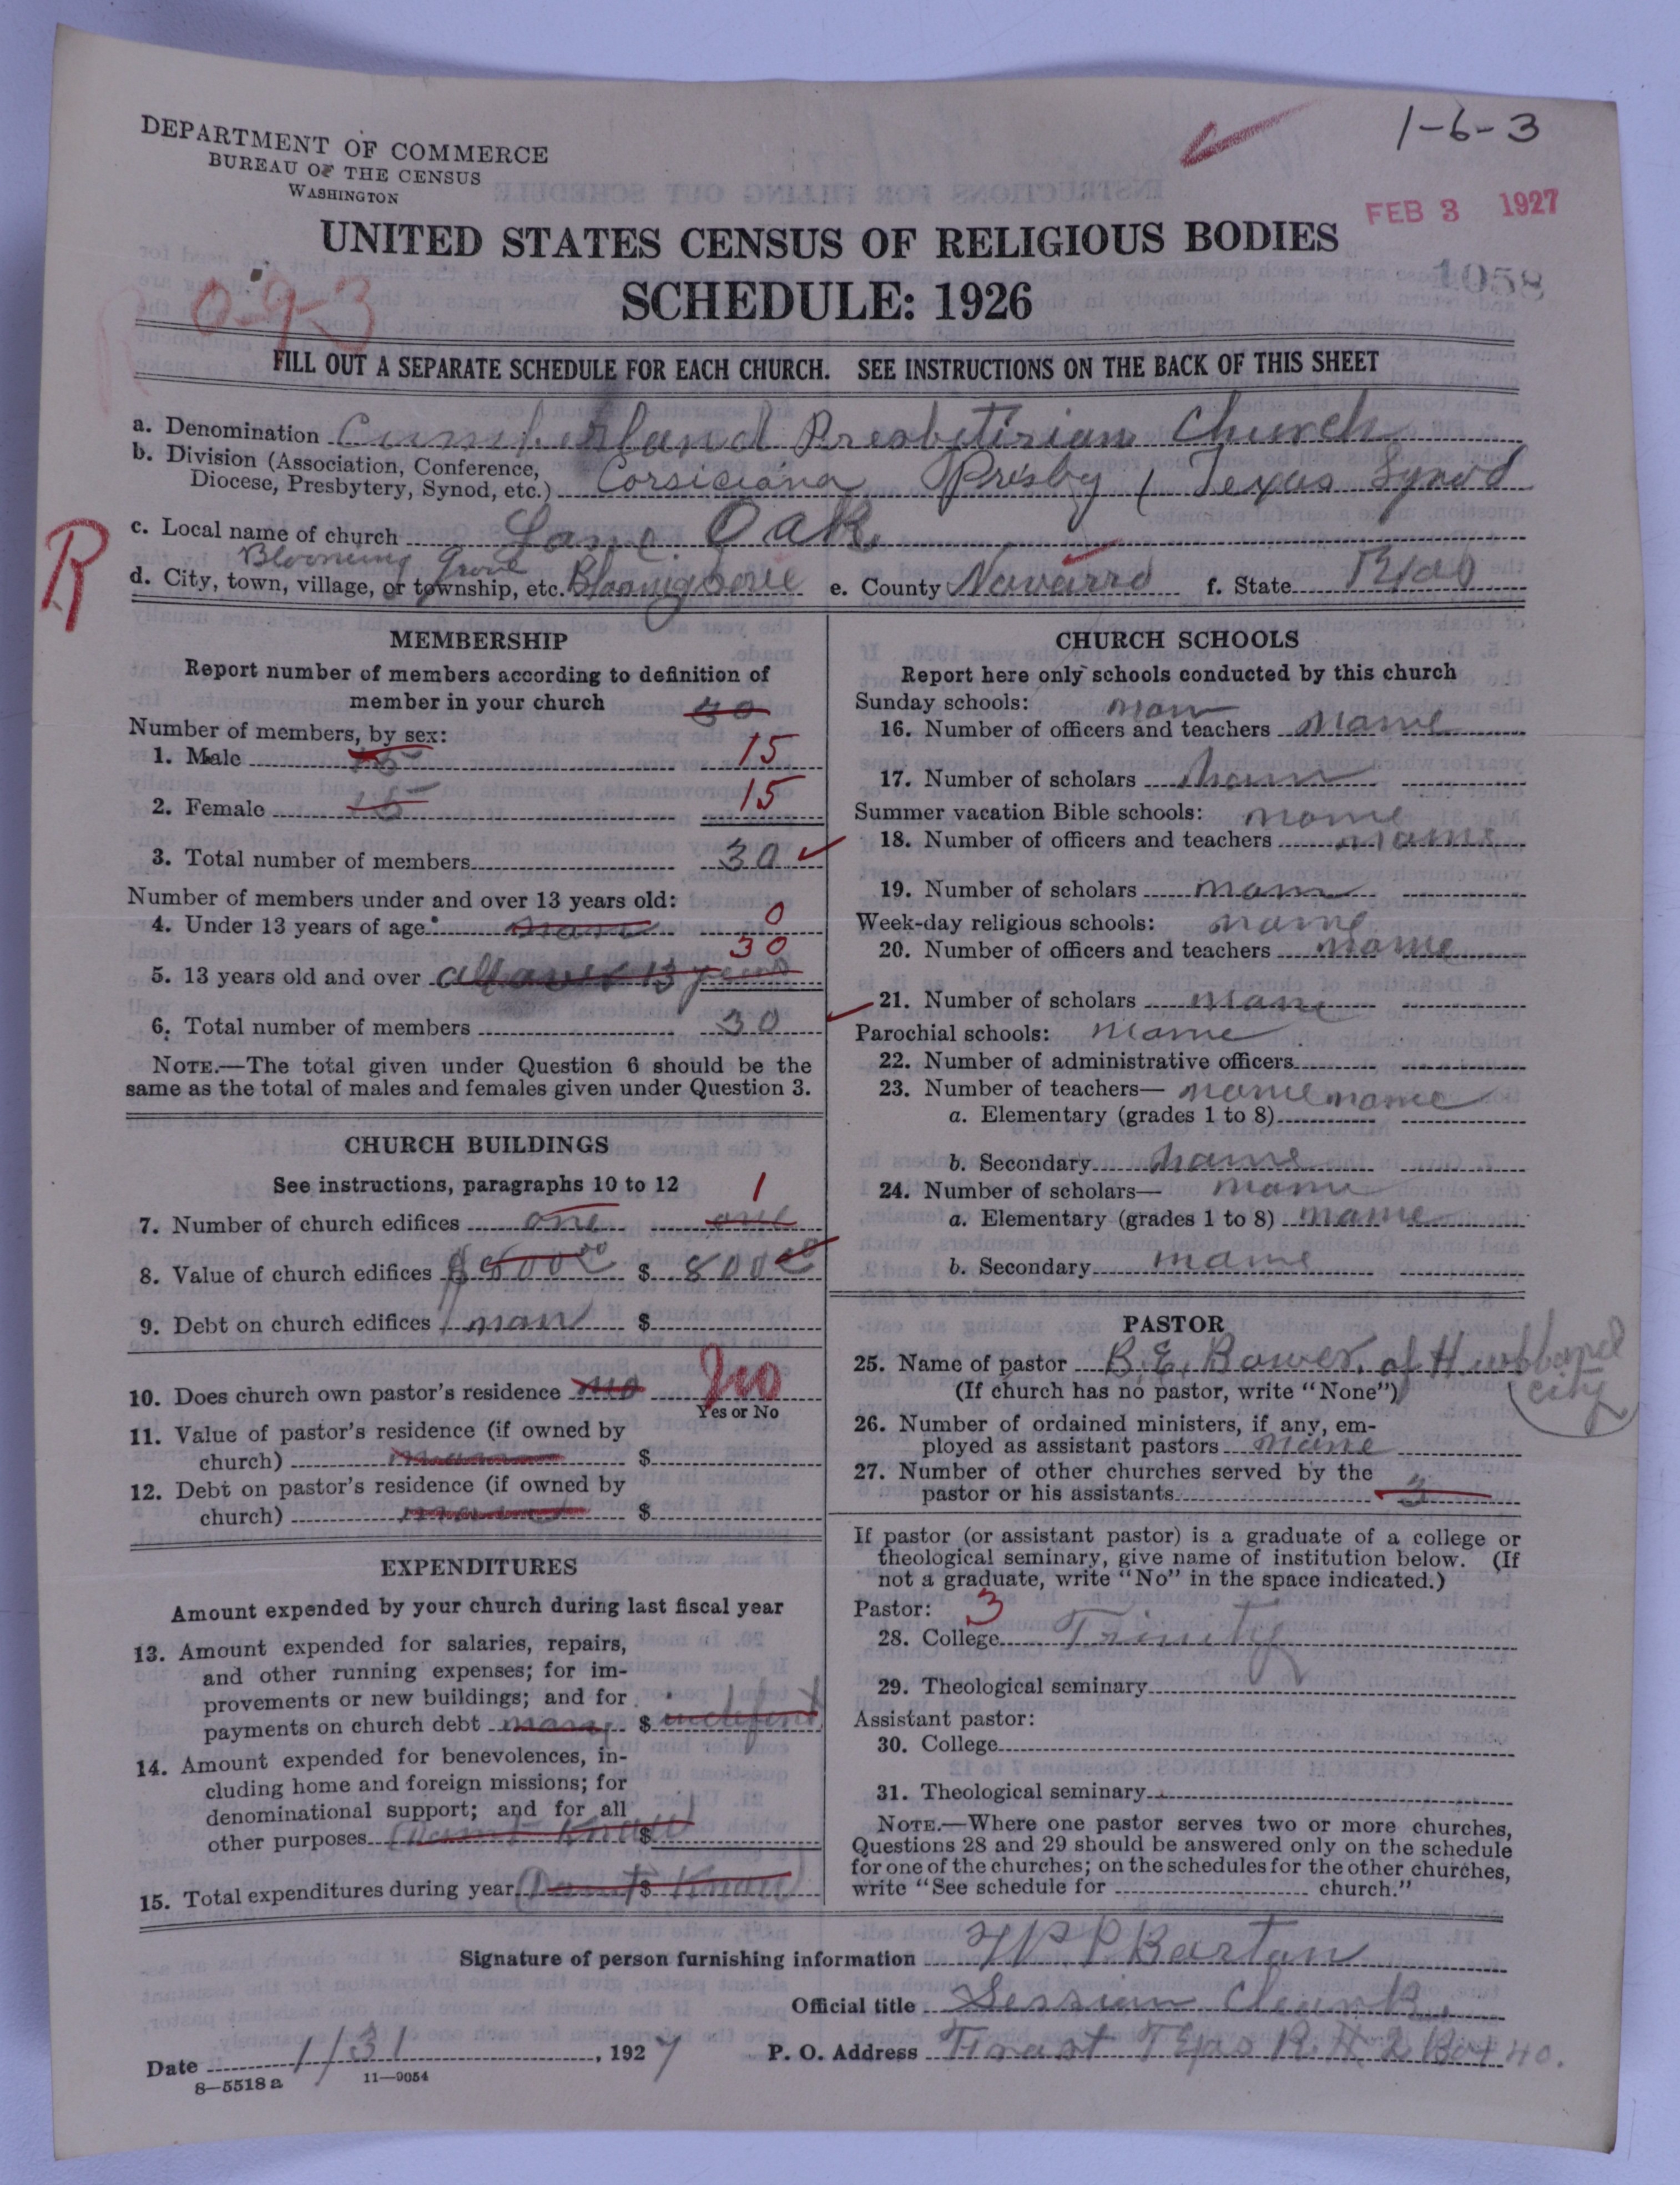 1-6-3
DEPARTMENT OF COMMERCE
BUREAU OF THE CENSUS
WASHINGTON
FEB 3 1927
UNITED STATES CENSUS OF RELIGIOUS BODIES
1058
SCHEDULE: 1926
0-9-3
FILL OUT A SEPARATE SCHEDULE FOR EACH CHURCH. SEE INSTRUCTIONS ON THE BACK OF THIS SHEET
a. Denomination Cumberland Presbetirian Church
b. Division (Association, Conference,
Diocese, Presbytery, Synod, etc.) Corsiciana Presby / Texas Synod
R
c. Local name of church Lone Oak
Blooming Grove
d. City, town, village, or township, etc. e. County Navarro f. State
MEMBERSHIP
Report number of members according to definition of
member in your church 30
Number of members, by sex:
1. Male 15 15
2. Female 15 15
3. Total number of members 30
Number of members under and over 13 years old:
4. Under 13 years of age 0
30
5. 13 years old and over all over 13 years
6. Total number of members 30
NOTE.—The total given under Question 6 should be the
same as the total of males and females given under Question 3.
CHURCH BUILDINGS
See instructions, paragraphs 10 to 12 1
7. Number of church edifices one one
8. Value of church edifices $800 00 $ 800 00
9. Debt on church edifices $
10. Does church own pastor's residence no No
Yes or No
11. Value of pastor's residence (if owned by
church) $
12. Debt on pastor's residence (if owned by
church) $
EXPENDITURES
Amount expended by your church during last fiscal year
13. Amount expended for salaries, repairs,
and other running expenses; for im-
provements or new buildings; and for
payments on church debt $
14. Amount expended for benevolences, in-
cluding home and foreign missions; for
denominational support; and for all
other purposes Dont Know $
15. Total expenditures during year Dont $ Know
CHURCH SCHOOLS
Report here only schools conducted by this church
Sunday schools:
16. Number of officers and teachers None
17. Number of scholars None
Summer vacation Bible schools: none
18. Number of officers and teachers none
19. Number of scholars none
Week-day religious schools: none
20. Number of officers and teachers none
21. Number of scholars none
Parochial schools: none
22. Number of administrative officers
23. Number of teachers— none none
a. Elementary (grades 1 to 8)
b. Secondary none
24. Number of scholars— none
a. Elementary (grades 1 to 8) none
b. Secondary none
PASTOR
25. Name of pastor B. E. Bower, of Hubbard
city
(If church has no pastor, write "None")
26. Number of ordained ministers, if any, em-
ployed as assistant pastors none
27. Number of other churches served by the
pastor or his assistants 3
If pastor (or assistant pastor) is a graduate of a college or
theological seminary, give name of institution below. (If
not a graduate, write "No" in the space indicated.)
Pastor: 3
28. College Trinity
29. Theological seminary
Assistant pastor:
30. College
31. Theological seminary
NOTE.—Where one pastor serves two or more churches,
Questions 28 and 29 should be answered only on the schedule
for one of the churches; on the schedules for the other churches,
write "See schedule for church."
Signature of person furnishing information Barton
Official title Session Clerk
Date 1/31, 1927 P. O. Address Frost Texas R.# 2 Box 40.
8—5518 a 11—9054